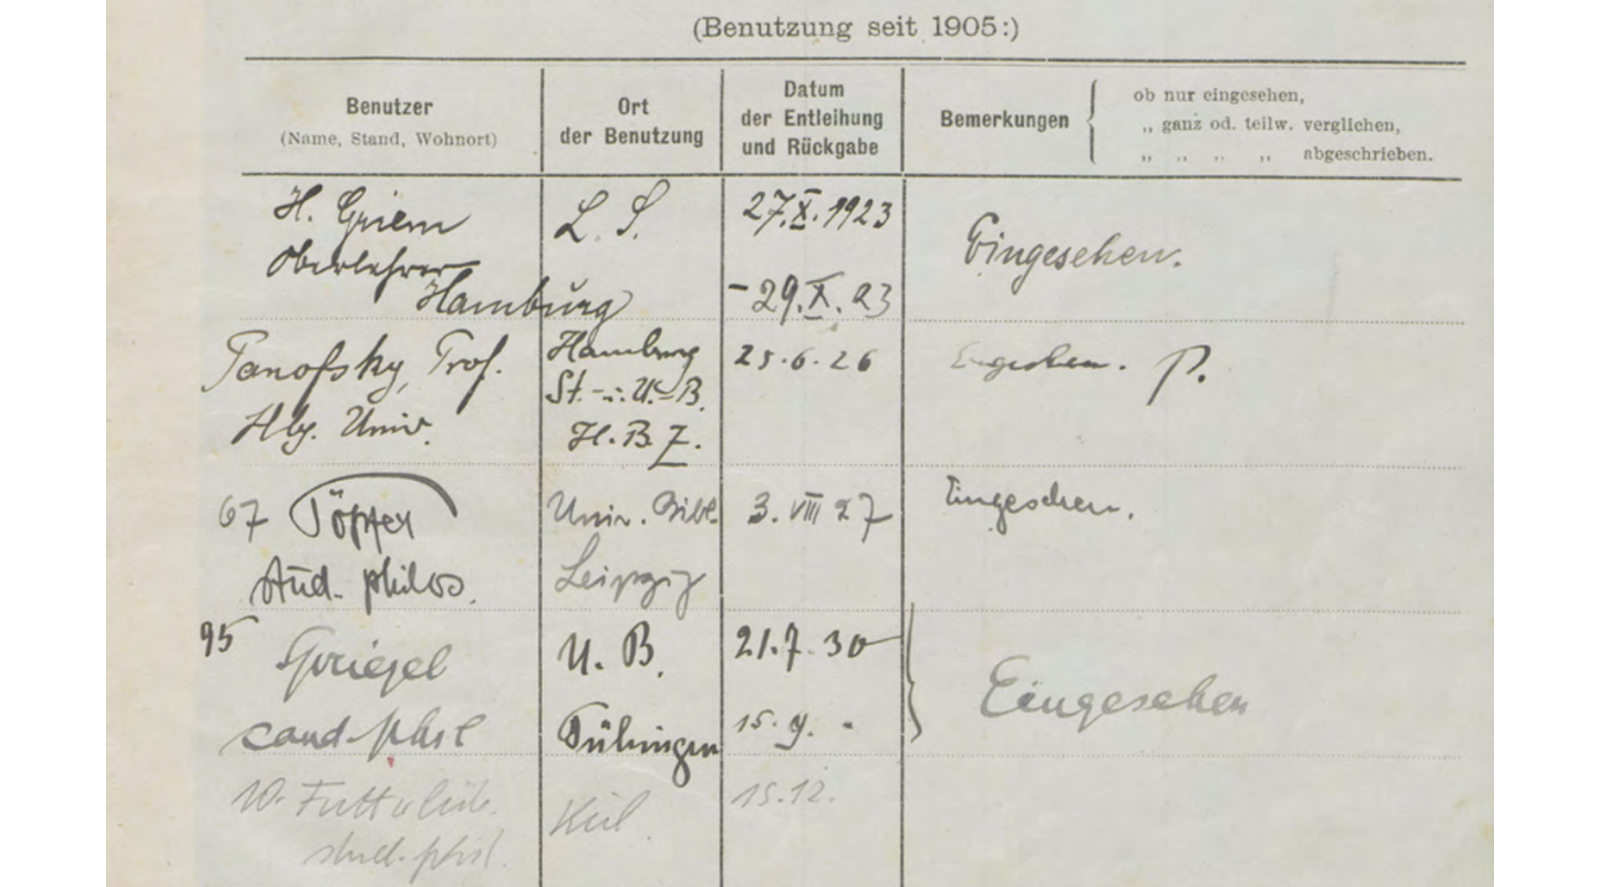 (Benutzung seit 1905:)
Benutzer
(Name, Stand, Wohnort)
Ort
der Benutzung
Datum
der Entleihung
und Rückgabe
Bemerkungen
ob nur eingesehen,
„ ganz od. teilw. verglichen,
„ „ „ „ abgeschrieben.
H. Griem
Oberlehrer
Hamburg
L. S.
27.X.1923
-29.X.23
Eingesehen.
Panofsky, Prof.
Hbg. Univ.
Hamburg
St.-u. U.-B.
H. B. 7.
25.6.26
Eingesehen. P.
67 Töpfer
stud. philos.
Univ. Bibl.
Leipzig
3. VIII 27
Eingesehen.
95 Spriegel
cand. phil
U. B.
Tübingen
21.7.30
15.9. "
Eingesehen
W.
stud. phil.
Kiel.
15.12.